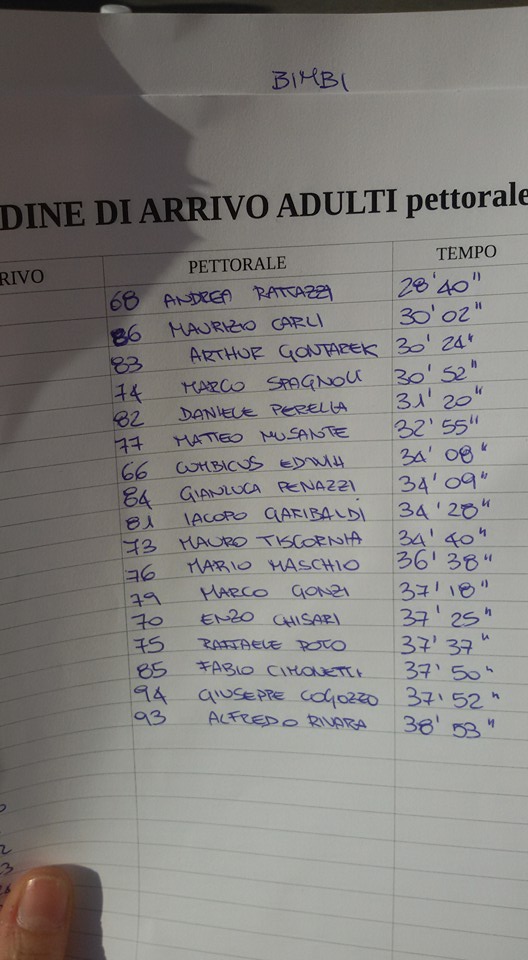 BIMBI
DINE DI ARRIVO ADULTI pettorale
RIVO PETTORALE TEMPO
68 ANDREA RATTAZZI 28'40"
86 MAURIZIO CARLI 30'02"
83 ARTHUR GONTAREK 30'24"
74 MARCO SPAGNOLI 30'52"
82 DANIELE PERELLA 31'20"
77 MATTEO MUSANTE 32'55"
66 34'08"
84 GIANLUCA PENAZZI 34'09"
81 IACOPO GARIBALDI 34'28"
73 MAURO TISCORNIA 34'40"
76 MARIO MASCHIO 36'38"
79 MARCO GONZI 37'18"
70 ENZO CHISARI 37'25"
75 RAFFAELE POTO 37'37"
85 FABIO CIMONETTI 37'50"
94 GIUSEPPE COGOZZO 37'52"
93 ALFREDO RIVARA 38'53"